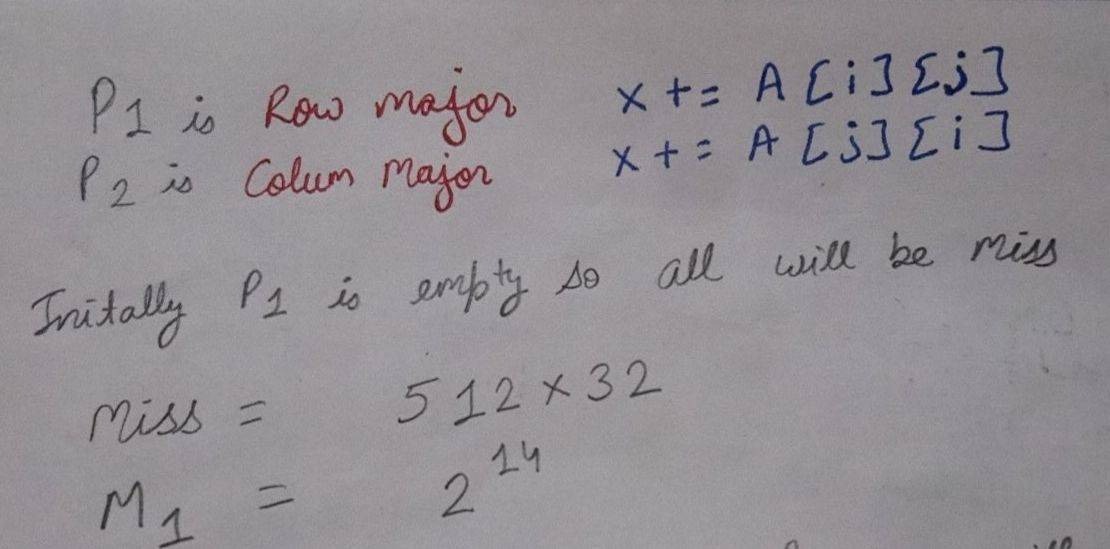 P1 is Row major x += A[i][j]
P2 is Colum Major x += A[j][i]
Initally P1 is empty so all will be miss
Miss = 512 x 32
M1 = 2^14